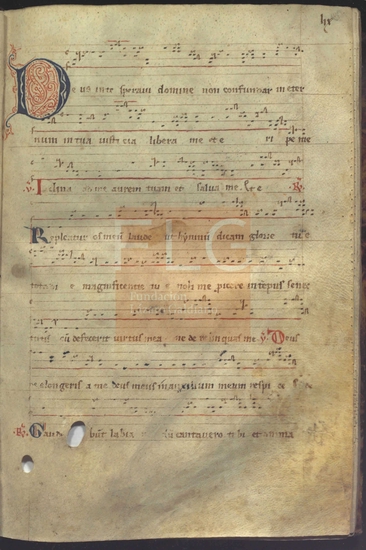 lix
Deus in te speraui domine non confundar in eter
num in tua iusticia libera me et e ri pe me
℣ Inclina ad me aurem tuam et salua me. Et e ℟
Repleatur os meum laude ut hymnum dicam glorie tue
tota die magnificentie tu e noli me proicere in tempus senec
tutis cum defecerit virtus mea ne de relinquas me ℣ Deus
ne elongeris a me deus meus in auxilium meum respi ce
℟ Gaude bunt labia cum cantauero ti bi et anima
LG
Fundación